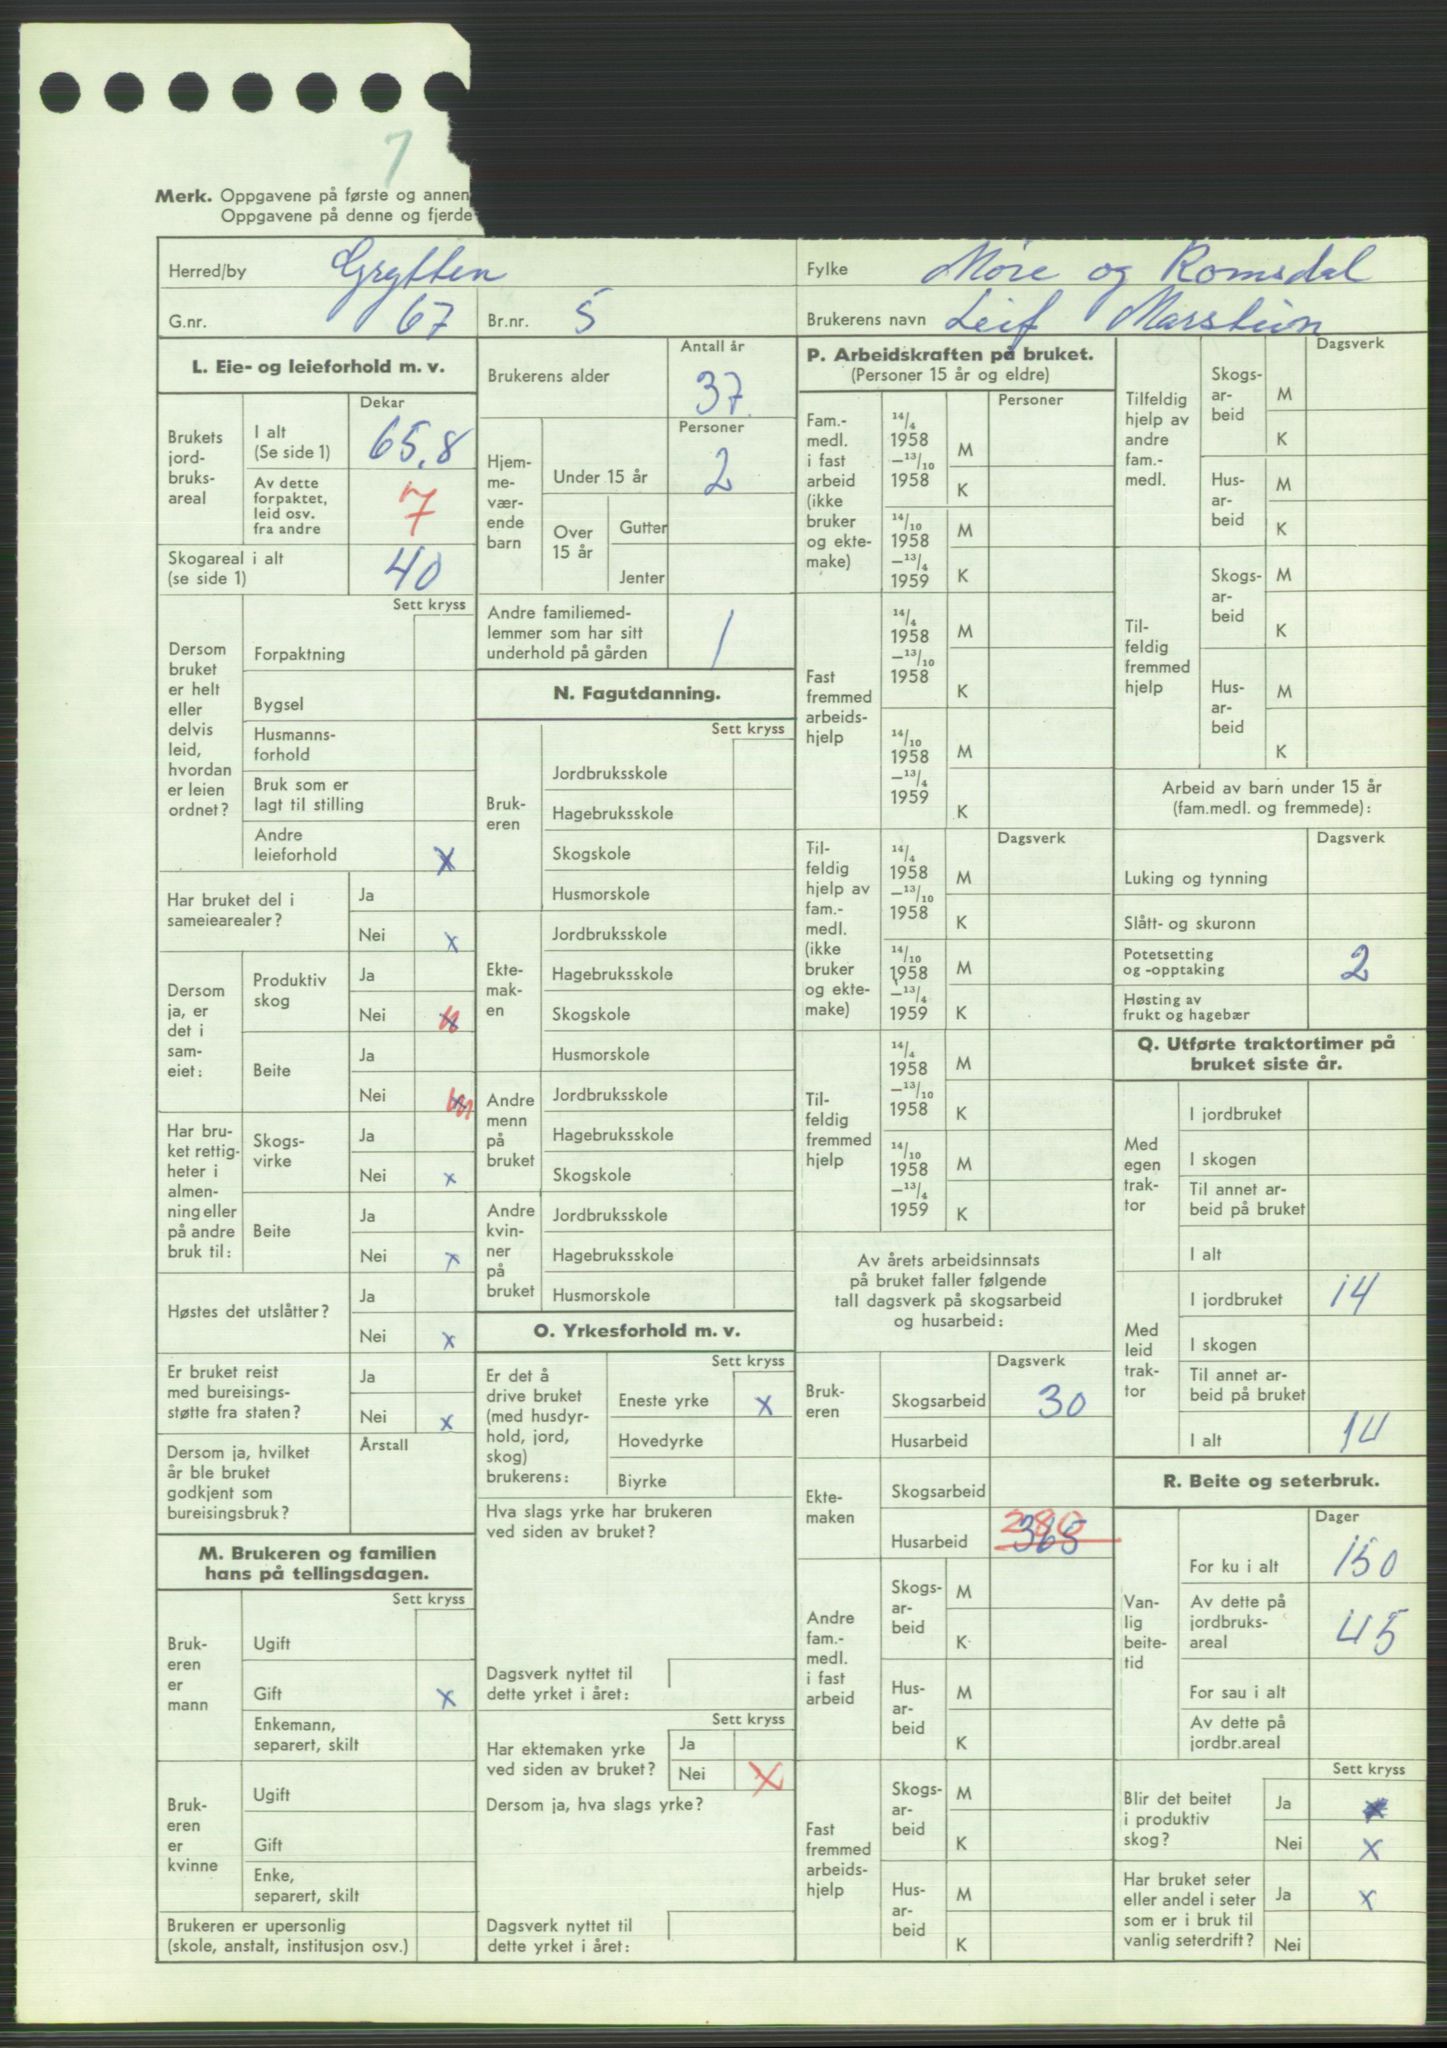 7
Merk. Oppgavene på første og annen
Oppgavene på denne og fjerde
Herred/by Grytten
Fylke Møre og Romsdal
G.nr. 67 Br.nr. 5
Brukerens navn Leif Marstein
L. Eie- og leieforhold m. v.
Dekar
Brukets jord-bruks-areal
I alt (Se side 1) 65,8
Av dette forpaktet, leid osv. fra andre 7
Skogareal i alt (se side 1) 40
Sett kryss
Dersom bruket er helt eller delvis leid, hvordan er leien ordnet?
Forpaktning
Bygsel
Husmanns-forhold
Bruk som er lagt til stilling
Andre leieforhold x
Har bruket del i sameiearealer?
Ja
Nei x
Dersom ja, er det i sam-eiet:
Produktiv skog
Ja
Nei x
Beite
Ja
Nei x
Har bru-ket rettig-heter i almen-ning eller på andre bruk til:
Skogs-virke
Ja
Nei x
Beite
Ja
Nei x
Høstes det utslåtter?
Ja
Nei x
Er bruket reist med bureisings-støtte fra staten?
Ja
Nei x
Dersom ja, hvilket år ble bruket godkjent som bureisingsbruk?
Årstall
M. Brukeren og familien hans på tellingsdagen.
Sett kryss
Bruk-eren er mann
Ugift
Gift x
Enkemann, separert, skilt
Bruk-eren er kvinne
Ugift
Gift
Enke, separert, skilt
Brukeren er upersonlig (skole, anstalt, institusjon osv.)
Antall år
Brukerens alder 37
Personer
Hjem-me-vær-ende barn
Under 15 år 2
Over 15 år
Gutter
Jenter
Andre familiemed-lemmer som har sitt underhold på gården 1
N. Fagutdanning.
Sett kryss
Bruk-eren
Jordbruksskole
Hagebruksskole
Skogskole
Husmorskole
Ekte-mak-en
Jordbruksskole
Hagebruksskole
Skogskole
Husmorskole
Andre menn på bruket
Jordbruksskole
Hagebruksskole
Skogskole
Andre kvin-ner på bruket
Jordbruksskole
Hagebruksskole
Husmorskole
O. Yrkesforhold m. v.
Sett kryss
Er det å drive bruket (med husdyr-hold, jord, skog) brukerens:
Eneste yrke x
Hovedyrke
Biyrke
Hva slags yrke har brukeren ved siden av bruket?
Dagsverk nyttet til dette yrket i året:
Sett kryss
Har ektemaken yrke ved siden av bruket?
Ja
Nei x
Dersom ja, hva slags yrke?
Dagsverk nyttet til dette yrket i året:
P. Arbeidskraften på bruket.
(Personer 15 år og eldre)
Personer
Fam.-medl. i fast arbeid (ikke bruker og ekte-make)
14/4 1958 –13/10 1958 M K
14/10 1958 –13/4 1959 M K
Fast fremmed arbeids-hjelp
14/4 1958 –13/10 1958 M K
14/10 1958 –13/4 1959 M K
Dagsverk
Til-feldig hjelp av fam.-medl. (ikke bruker og ekte-make)
14/4 1958 –13/10 1958 M K
14/10 1958 –13/4 1959 M K
Til-feldig fremmed hjelp
14/4 1958 –13/10 1958 M K
14/10 1958 –13/4 1959 M K
Av årets arbeidsinnsats på bruket faller følgende tall dagsverk på skogsarbeid og husarbeid:
Dagsverk
Bruk-eren
Skogsarbeid 30
Husarbeid
Ekte-maken
Skogsarbeid
Husarbeid 365 280
Andre fam.-medl. i fast arbeid
Skogs-ar-beid M K
Hus-ar-beid M K
Fast fremmed arbeids-hjelp
Skogs-ar-beid M K
Hus-ar-beid M K
Dagsverk
Tilfeldig hjelp av andre fam.-medl.
Skogs-ar-beid M K
Hus-ar-beid M K
Til-feldig fremmed hjelp
Skogs-ar-beid M K
Hus-ar-beid M K
Arbeid av barn under 15 år (fam.medl. og fremmede):
Dagsverk
Luking og tynning
Slått- og skuronn
Potetsetting og -opptaking 2
Høsting av frukt og hagebær
Q. Utførte traktortimer på bruket siste år.
Med egen trak-tor
I jordbruket
I skogen
Til annet ar-beid på bruket
I alt
Med leid trak-tor
I jordbruket 14
I skogen
Til annet ar-beid på bruket
I alt 14
R. Beite og seterbruk.
Dager
Van-lig beite-tid
For ku i alt 150
Av dette på jordbruks-areal 45
For sau i alt
Av dette på jordbr.areal
Sett kryss
Blir det beitet i produktiv skog?
Ja x
Nei x
Har bruket seter eller andel i seter som er i bruk til vanlig seterdrift?
Ja x
Nei